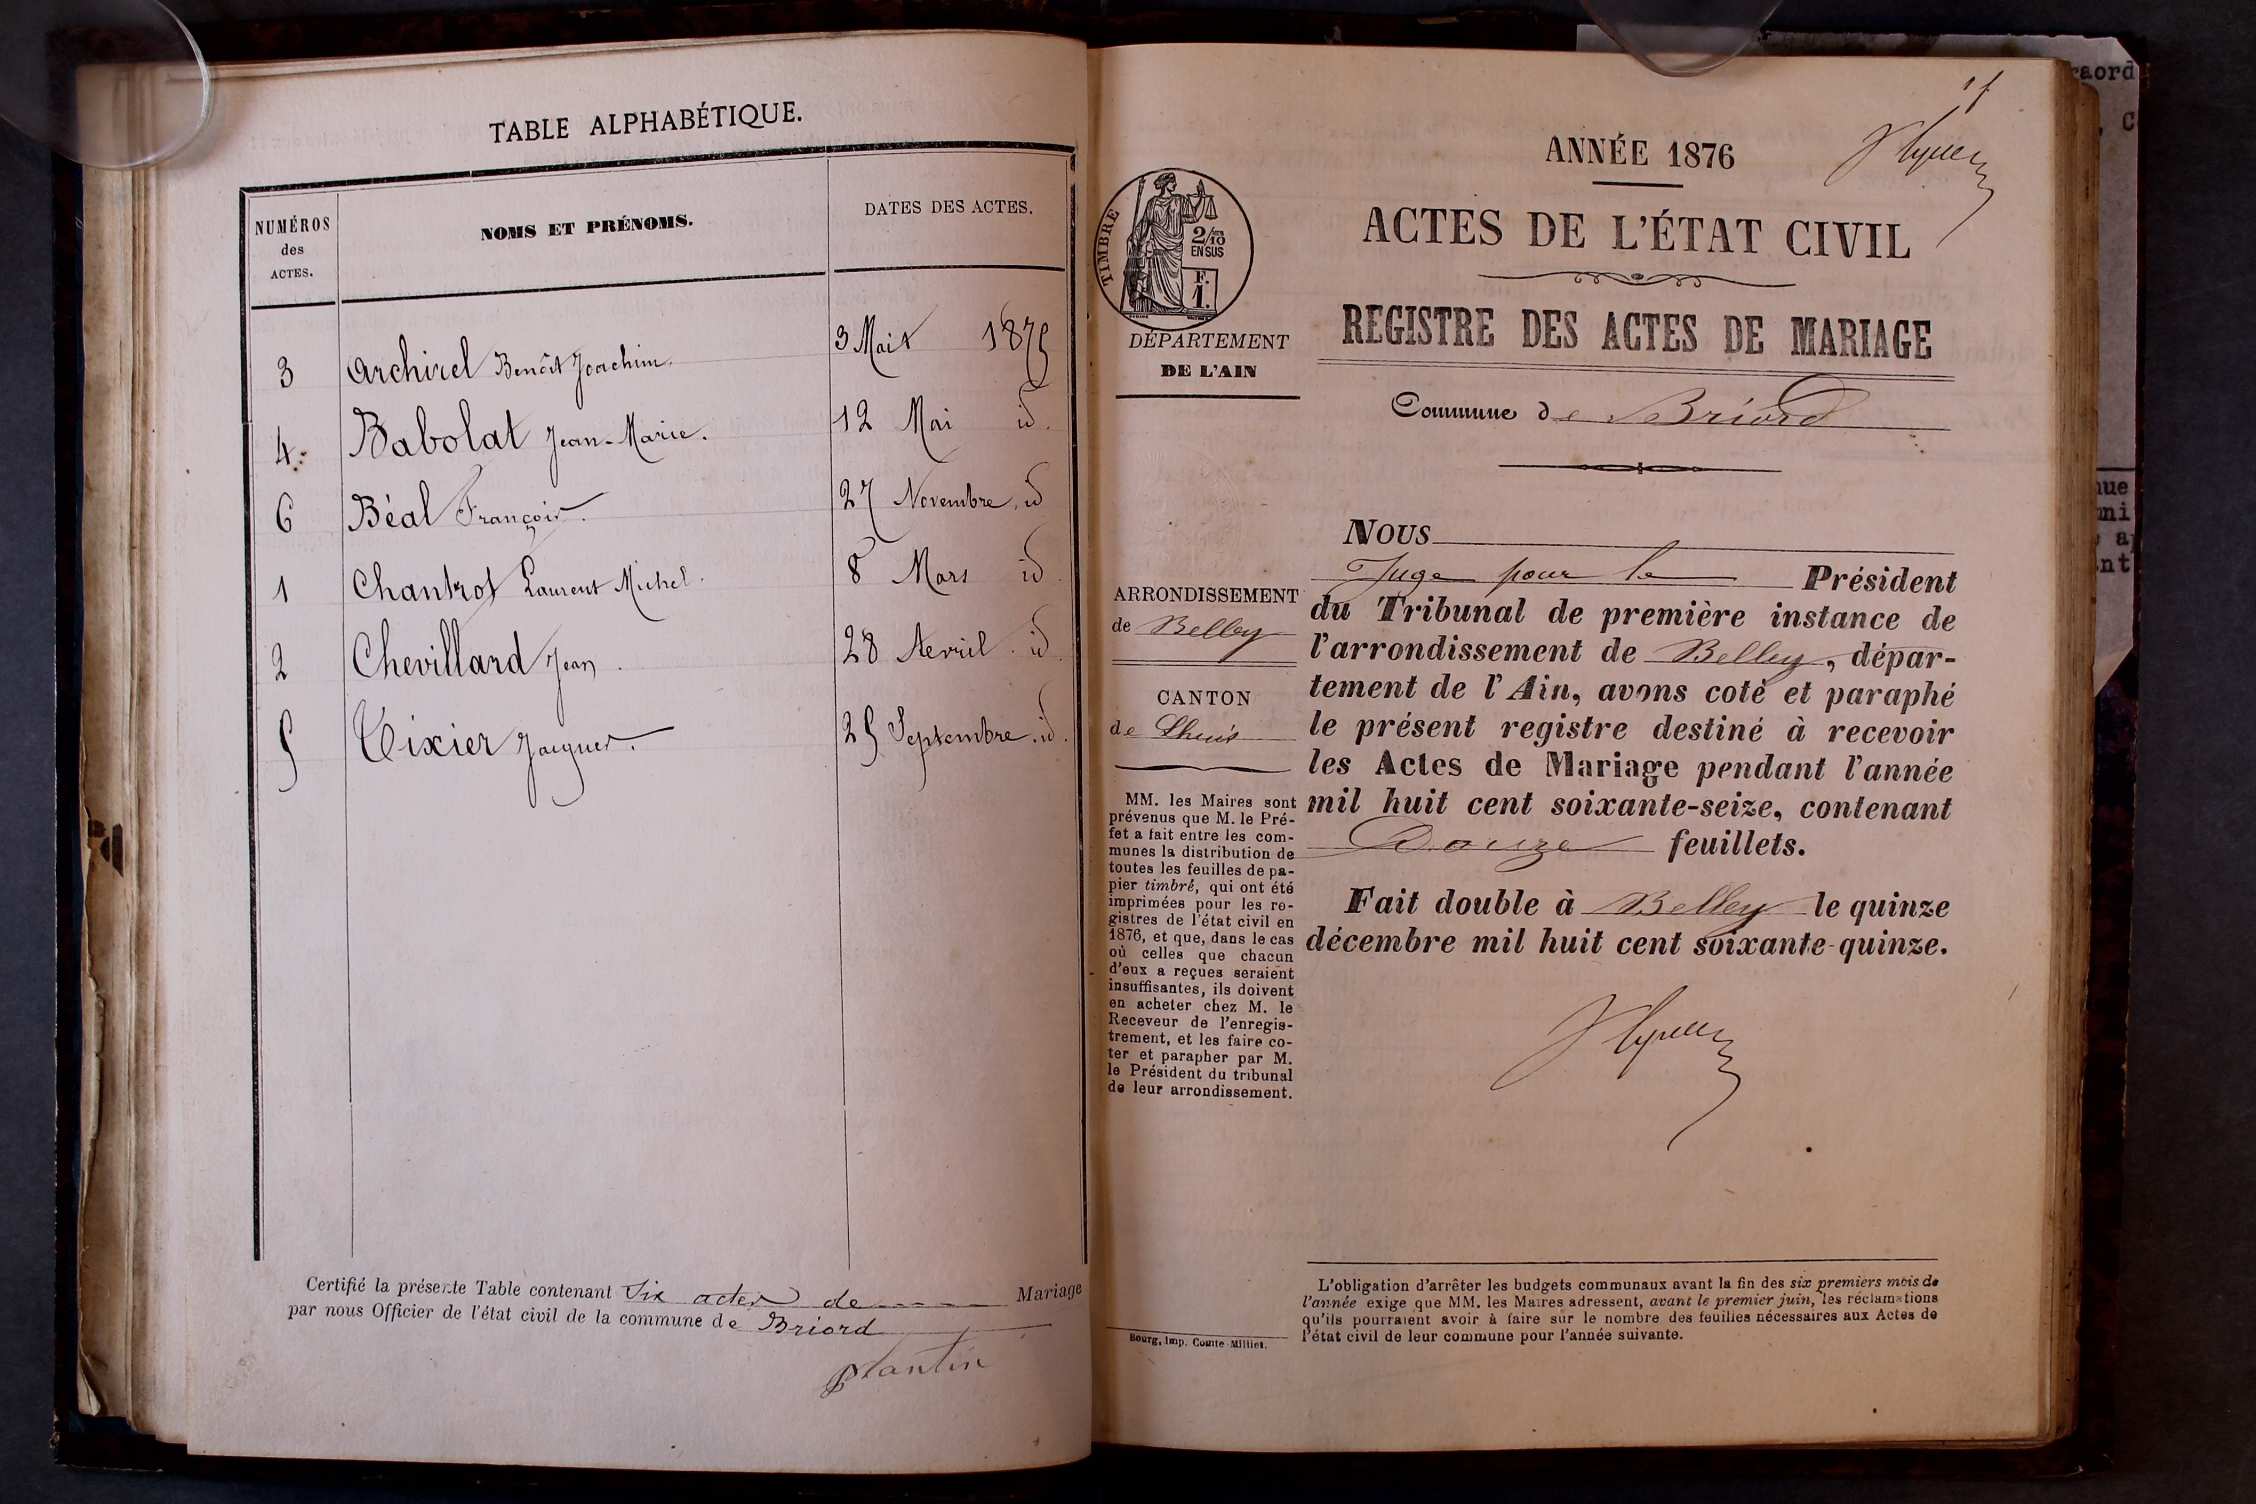 TABLE ALPHABÉTIQUE.
NUMÉROS
des
ACTES.
NOMS ET PRÉNOMS.
DATES DES ACTES.
3 Archirel Benoît Joachim. 3 Mai 1875
4. Babolat Jean-Marie. 12 Mai id.
6 Béal François. 27 Novembre. id
1 Chantrot Laurent Michel. 8 Mars id.
2 Chevillard Jean. 28 Avril. id.
5 Tixier Jacques. 25 Septembre. id.
Certifié la présente Table contenant Six actes de Mariage
par nous Officier de l'état civil de la commune de Briord
Plantin
ANNÉE 1876
ACTES DE L'ÉTAT CIVIL
REGISTRE DES ACTES DE MARIAGE
Commune de Briord
TIMBRE
2/10
EN SUS
F.
1.
DÉPARTEMENT
DE L'AIN
ARRONDISSEMENT
de Belley
CANTON
de Lhuis
MM. les Maires sont
prévenus que M. le Pré-
fet a fait entre les com-
munes la distribution de
toutes les feuilles de pa-
pier timbré, qui ont été
imprimées pour les re-
gistres de l'état civil en
1876, et que, dans le cas
où celles que chacun
d'eux a reçues seraient
insuffisantes, ils doivent
en acheter chez M. le
Receveur de l'enregis-
trement, et les faire co-
ter et parapher par M.
le Président du tribunal
de leur arrondissement.
Bourg, Imp. Comte-Milliet.
NOUS
Juge pour le Président
du Tribunal de première instance de
l'arrondissement de Belley, dépar-
tement de l'Ain, avons coté et paraphé
le présent registre destiné à recevoir
les Actes de Mariage pendant l'année
mil huit cent soixante-seize, contenant
Douze feuillets.
Fait double à Belley le quinze
décembre mil huit cent soixante-quinze.
L'obligation d'arrêter les budgets communaux avant la fin des six premiers mois de
l'année exige que MM. les Maires adressent, avant le premier juin, les réclamations
qu'ils pourraient avoir à faire sur le nombre des feuilles nécessaires aux Actes de
l'état civil de leur commune pour l'année suivante.